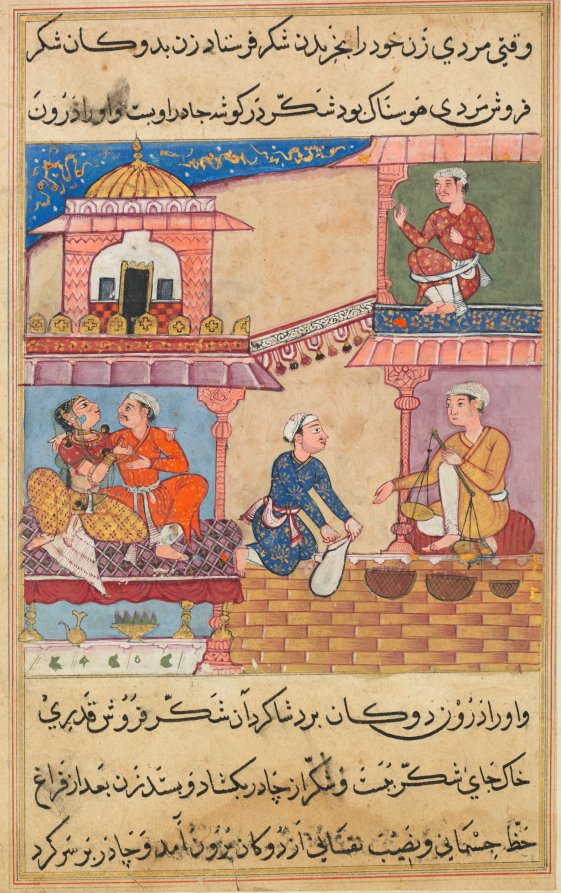 وقتی مردی زن خود را بخریدن شکر فرستاد زن بدوکان شکر
فروش مردی هوسناک بود شکّر در کوشه چادر او بست و او را درون
و او را درون دوکان برد شاکرد آن شکّر فروش قدری
خاک جای شکّر ببست و شکّر از چادر بکشاد و بستد زن بعد از فراغ
حظّ جسمانی و نصیب نفسانی از دوکان برون آمد و چادر بر سر کرد